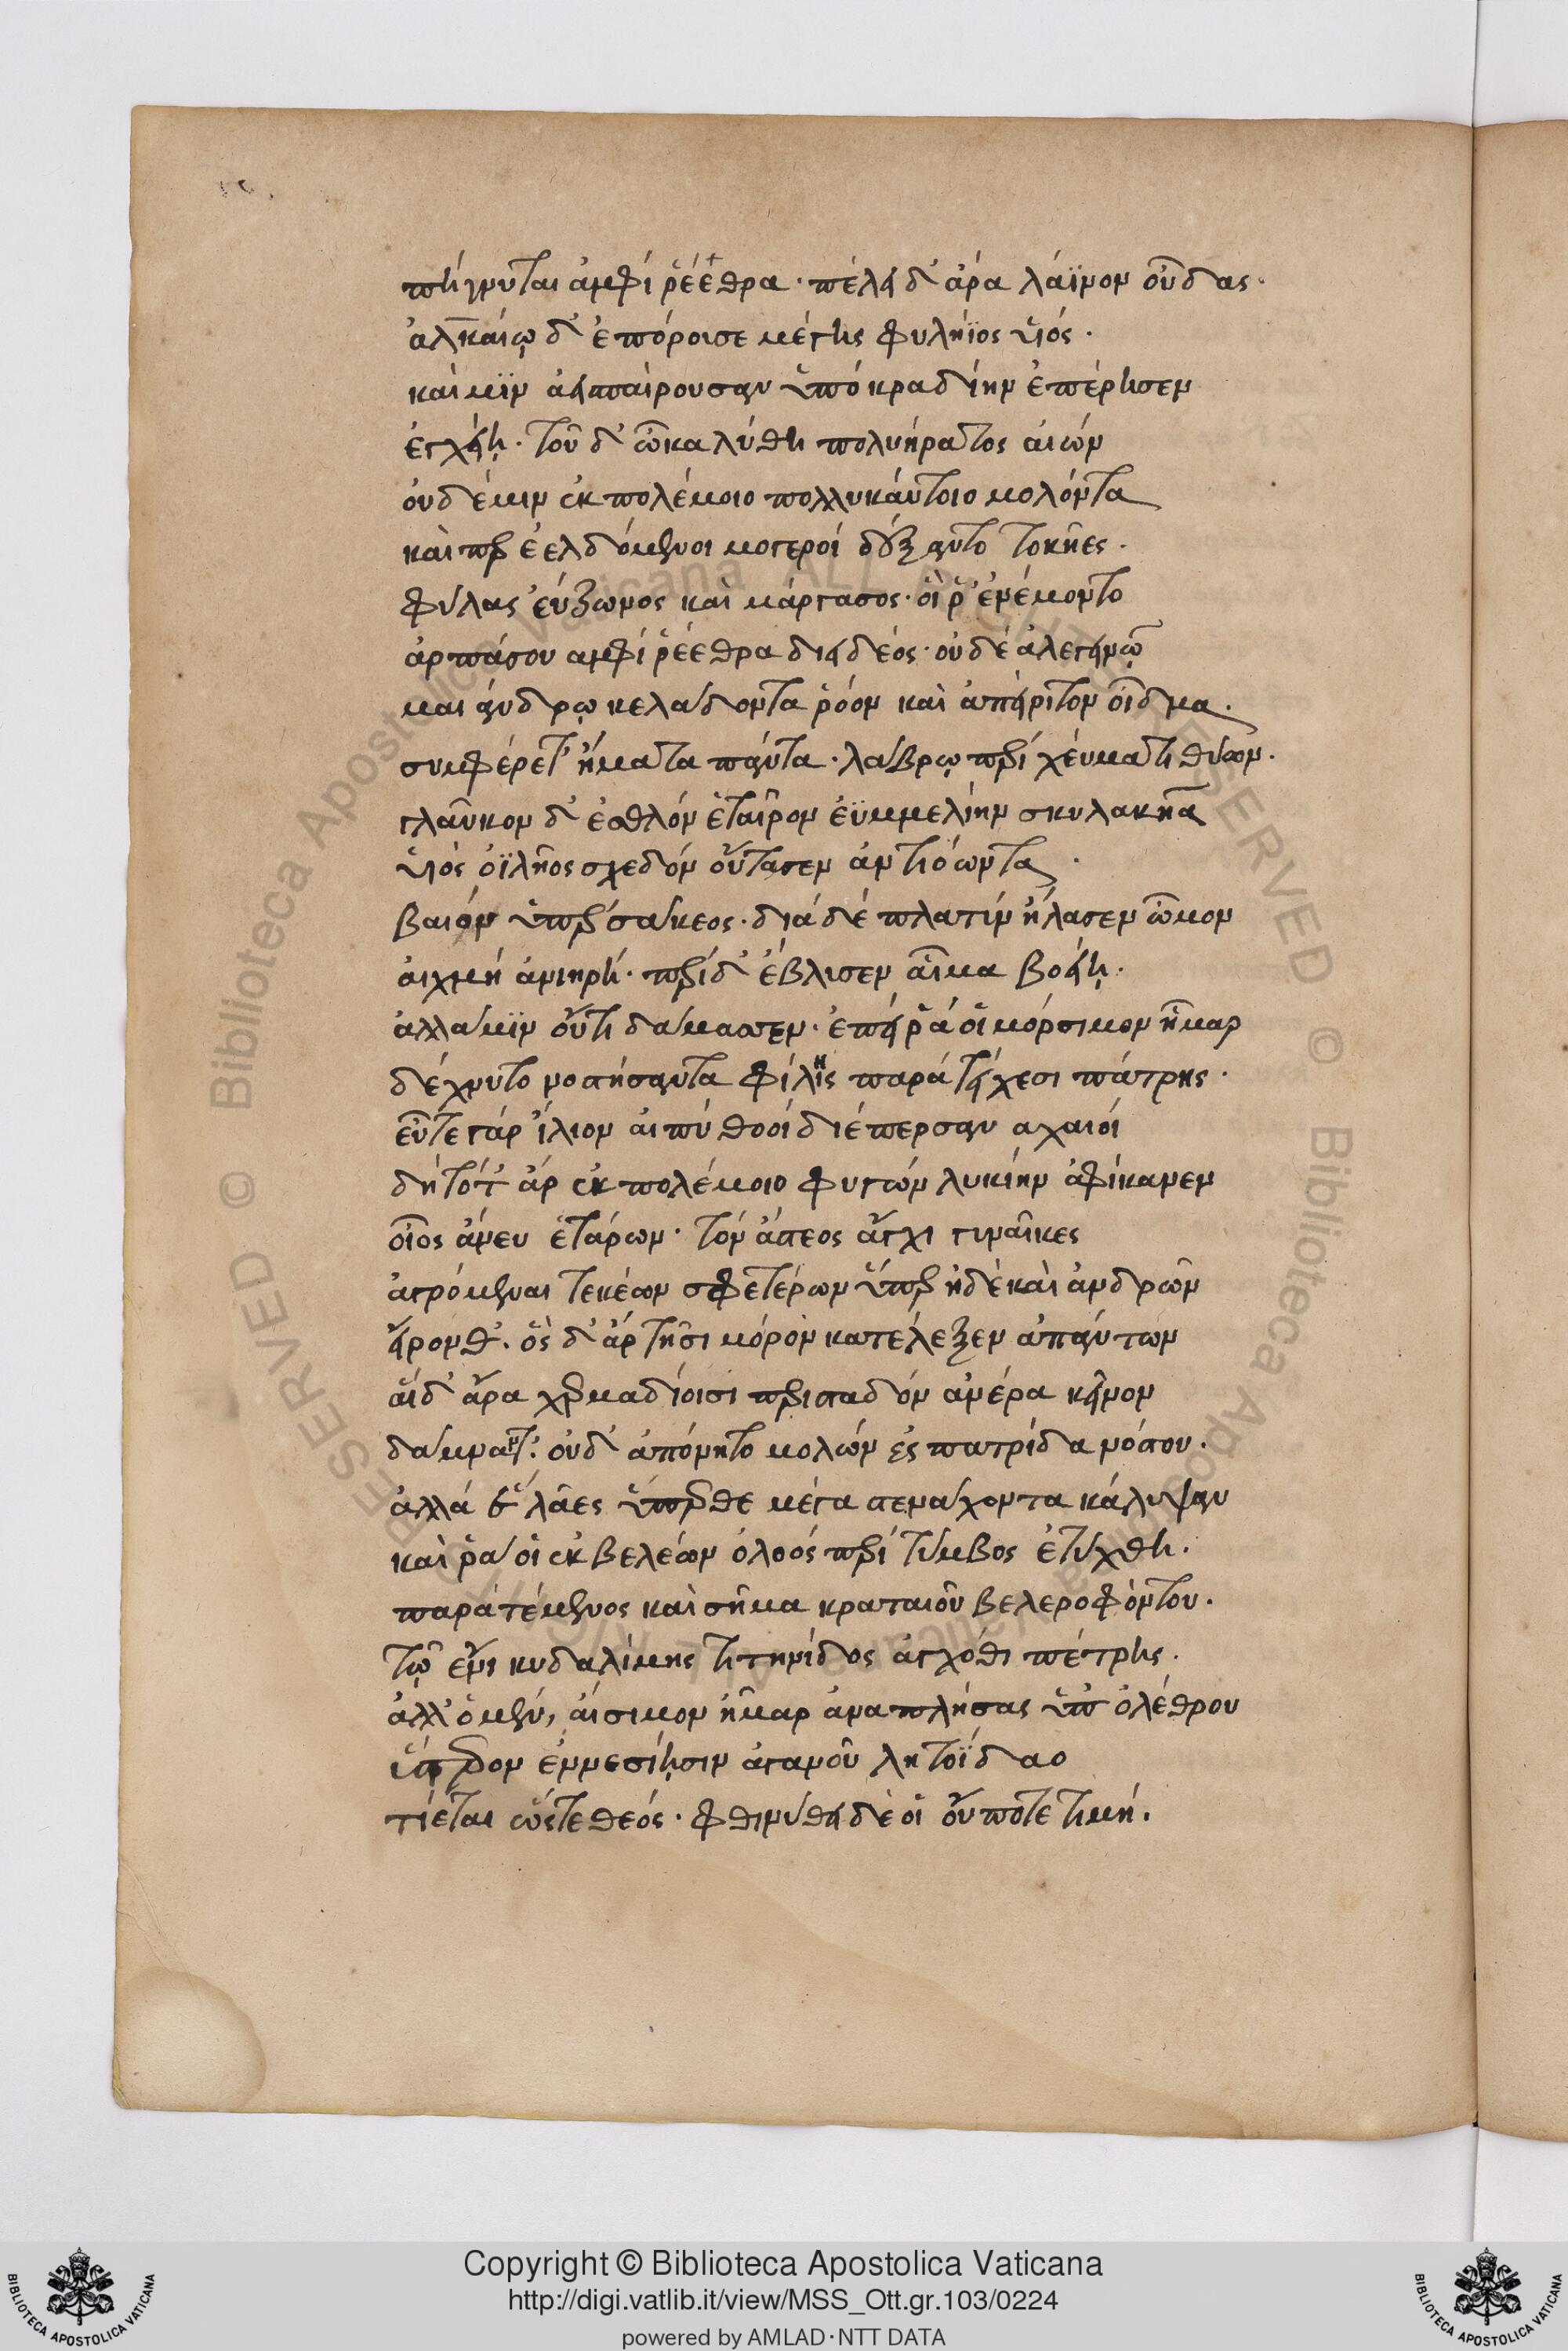 πήγνυται ἀμφὶ ῥέεθρα· πέλει δ' ἄρα λάϊνον οὖδας·
ἀλκαίῳ δ' ἐπόρουσε μέγης φυλήϊος υἱός·
καί μιν ἀνπαίρουσαν ὑπὸ κραδίην ἐπέρησεν
ἐγχείῃ· τοῦ δ' ὦκα λύθη πολυήρατος αἰών
οὐδέ μιν ἐκ πολέμοιο πολλυκαύτοιο μολόντα
καίπερ ἐελδόμενοι μογεροί δέξαντο τοκῆες·
φύλας εὔζωνος καὶ μάργασος· οἵ ῥ' ἐνέμοντο
ἁρπάσου ἀμφὶ ῥέεθρα διειδέος· οὐδὲ ἀλεγεινῷ
μαι άνδρῳ κελάδοντα ῥόον καὶ ἀπείριτον οἶδμα·
συμφέρετ' ἤματα πάντα· λάβρῳ περὶ χεύματι θύων·
γλαῦκον δ' ἐσθλὸν ἑταῖρον ἐϋμμελίην σκυλακῆα
υἱὸς ὀϊλῆος σχεδὸν οὔτασεν ἀντιόωντα·
βαιὸν ὑπὲρ σάκεος· διὰ δὲ πλατὺν ἤλασεν ὦμον
αἰχμὴ ἀνιηρή· περὶ δ' ἔβλισεν αἷμα βοείῃ·
ἀλλά μιν οὔτι δάμασσεν· ἐπεί ῥά οἱ μόρσιμον ἦμαρ
δέχνυτο νοστήσαντα φίλης παρὰ τείχεσι πάτρης·
εὖτε γὰρ ἴλιον αἰπὺ θοοὶ διέπερσαν ἀχαιοί
δὴ τότ' ἄρ ἐκ πολέμοιο φυγὼν λυκίην ἀφίκανεν
οἶος ἄνευ ἑτάρων· τὸν ἄστεος ἄγχι γυναῖκες
ἀγρόμεναι τεκέων σφετέρων ὕπερ ἠδὲ καὶ ἀνδρῶν
εἴρονθ'· ὃς δ' ἄρ τῇσι μόρον κατέλεξεν ἁπάντων
αἱ δ' ἄρα χερμαδίοισι περισταδὸν ἀνέρα κεῖνον
δάμνατ'· οὐδ' ἀπόνητο μολὼν ἐς πατρίδα νόστου·
ἀλλά ἑ λᾶες ὕπερθε μέγα στενάχοντα κάλυψαν
καί ῥά οἱ ἐκ βελέων ὀλοὸς περὶ τύμβος ἐτύχθη·
παρὰ τέμενος καὶ σῆμα κραταιοῦ βελεροφόντου·
τῷ ἐνι κυδαλίμης τιτηνίδος ἀγχόθι πέτρης·
ἀλλ' ὁ μὲν, αἴσιμον ἦμαρ ἀναπλήσας ὑπ' ὀλέθρου
ὕστερον ἐννεσίῃσιν ἀγαυοῦ λητοΐδαο
τίεται ὥστε θεός· φθινύθει δέ οἱ οὔποτε τιμή.
Copyright © Biblioteca Apostolica Vaticana
http://digi.vatlib.it/view/MSS_Ott.gr.103/0224
powered by AMLAD·NTT DATA